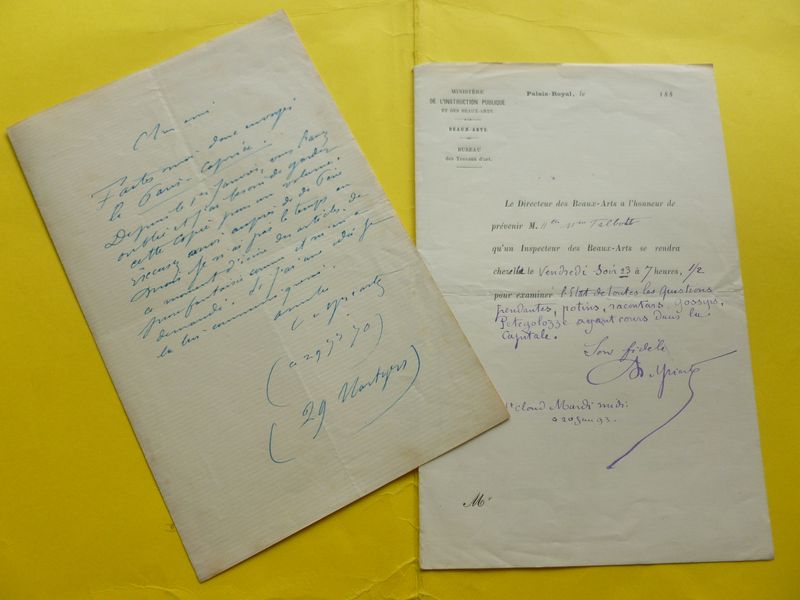 Faites moi donc envoyer
le Paris-Caprice.
Depuis le 1er Janvier, vous l'avez
oublié et j'ai besoin de garder
cette copie pour un volume.
Excusez moi aussi auprès de
mais je n'ai pas le temps en
ce moment d'écrire des articles de
pure fantaisie comme il m'en a
demandé. Si j'ai une idée je
la lui communiquerai.
(29 Martyrs)
MINISTÈRE
DE L'INSTRUCTION PUBLIQUE
ET DES BEAUX-ARTS.
BEAUX-ARTS.
BUREAU
des Travaux d'art.
Palais-Royal, le 188
Le Directeur des Beaux-Arts a l'honneur de
prévenir M. Talbott
qu'un Inspecteur des Beaux-Arts se rendra
chez elle le Vendredi Soir 23 à 7 heures, 1/2
pour examiner l'Etat de toutes les Questions
pendantes, potins, racontars, gossips,
Petegolezze ayant cours dans la
Capitale.
Son fidèle
Ch Yriarte
St Cloud Mardi midi
20 Jan 93.
Mr